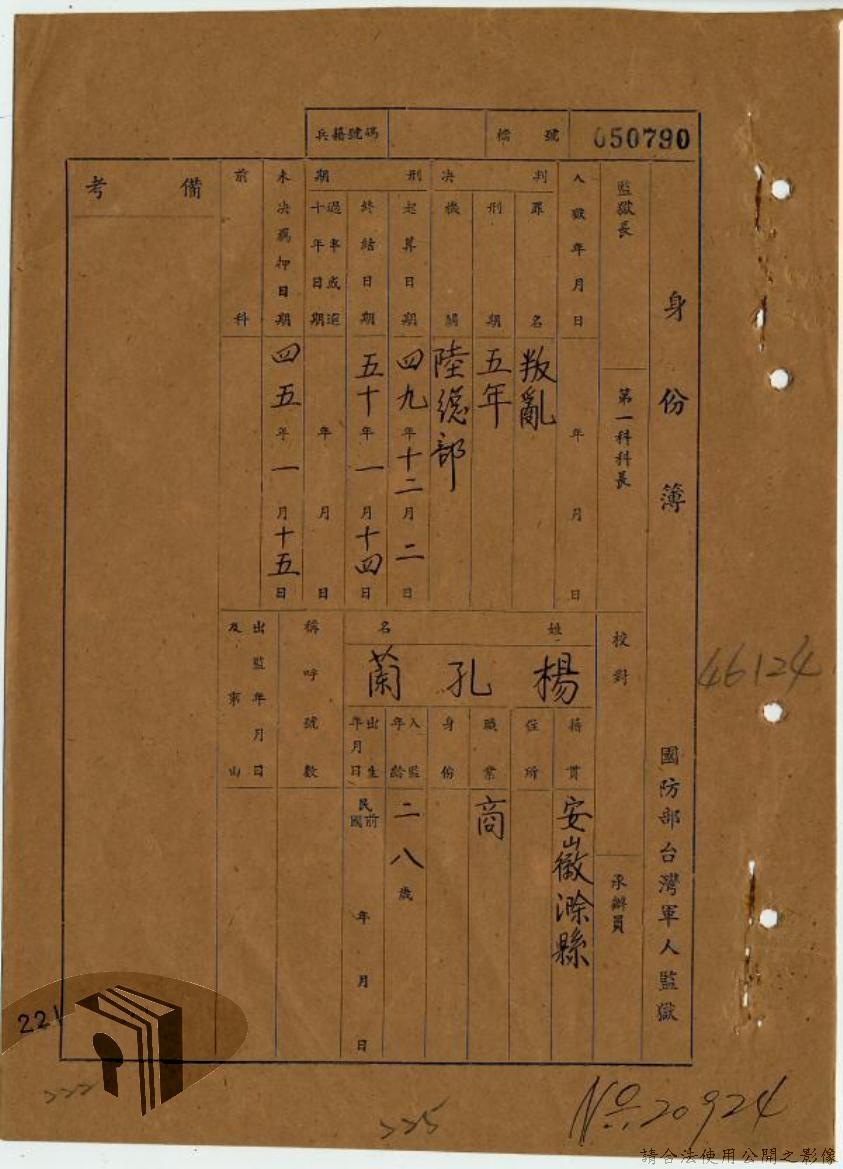 兵籍號碼
檔號 050790
身份簿 國防部台灣軍人監獄
監獄長
第一科科長
校對
承辦員
入獄年月日 年 月 日
判決
罪名 叛亂
刑期 五年
機關 陸總部
刑期
起算日期 四九年十二月二日
終結日期 五十年一月十四日
年 月 日
未決羈押日期 四五年一月十五日
前科
備考
姓名 楊孔蘭
籍貫 安徽滁縣
住所
職業 商
身份
入監年齡 二八歲
出生年月日 民國前 年 月 日
稱呼號數
出監年月日
及事由
46124
221
222
225
No.20924
請合法使用公開之影像